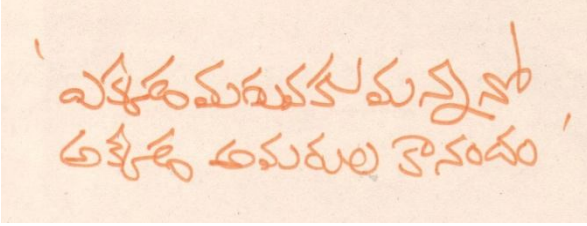 'ఎక్కడ మరువకుమన్నానో
అక్కడ అమరుల కానందం'